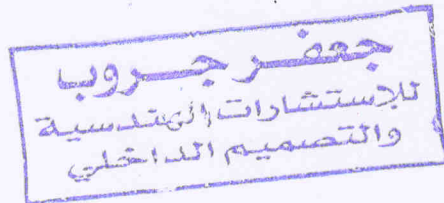 جعفر جروب
للاستشارات الهندسية
والتصميم الداخلي